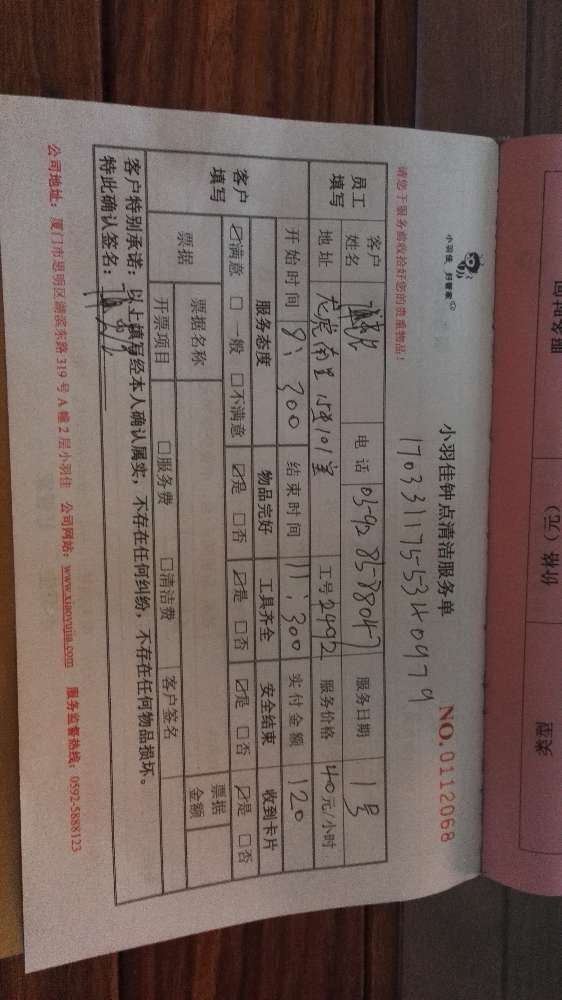 小羽佳 好管家
小羽佳钟点清洁服务单
NO.0112068
17033117553140979
请您于服务前收拾好您的贵重物品!
员工填写 客户姓名 电话 服务日期 1号
地址 工号 2492 服务价格 40元/小时
开始时间 8:300 结束时间 11:300 实付金额 120
客户填写 服务态度 物品完好 工具齐全 安全结束 收到卡片
☑满意 □一般 □不满意 ☑是 □否 ☑是 □否 ☑是 □否 ☑是 □否
票据 票据名称 票据金额
开票项目 □服务费 □清洁费 客户签名
客户特别承诺:以上填写经本人确认属实,不存在任何纠纷,不存在任何物品损坏。
特此确认签名:
公司地址:厦门市思明区湖滨东路319号A幢2层小羽佳 公司网站:www.xiaoyujia.com 服务监督热线:0592-5888123
服务时间
价格(元)
类型